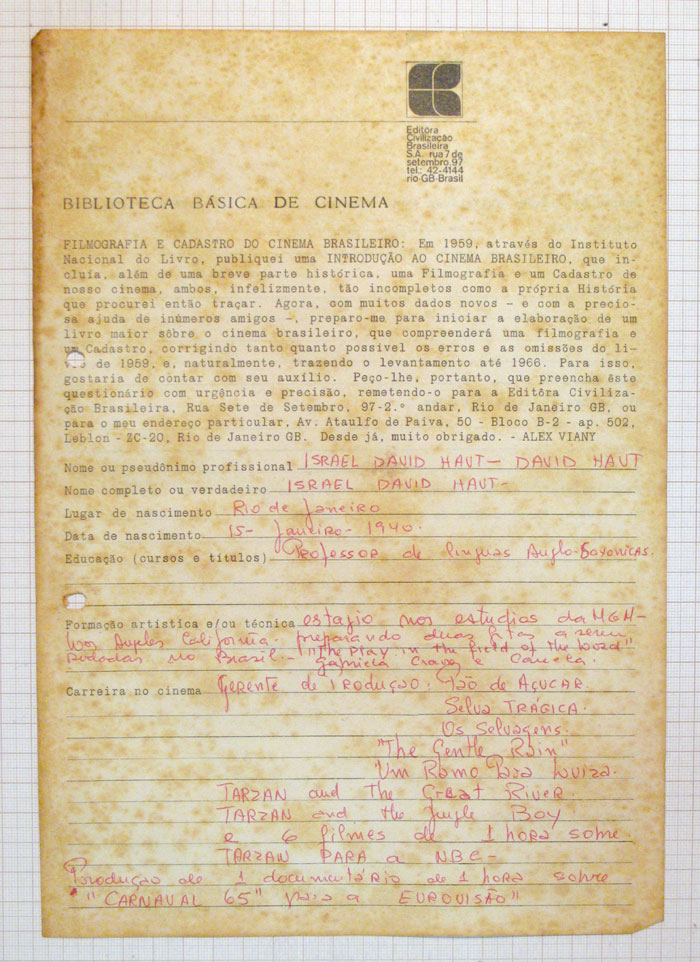 Editôra
Civilização
Brasileira
S.A. rua 7 de
setembro, 97
tel.: 42-4144
rio·GB·Brasil
BIBLIOTECA BÁSICA DE CINEMA
FILMOGRAFIA E CADASTRO DO CINEMA BRASILEIRO: Em 1959, através do Instituto
Nacional do Livro, publiquei uma INTRODUÇÃO AO CINEMA BRASILEIRO, que in-
cluía, além de uma breve parte histórica, uma Filmografia e um Cadastro de
nosso cinema, ambos, infelizmente, tão incompletos como a própria História
que procurei então traçar. Agora, com muitos dados novos - e com a precio-
sa ajuda de inúmeros amigos -, preparo-me para iniciar a elaboração de um
livro maior sôbre o cinema brasileiro, que compreenderá uma filmografia e
um Cadastro, corrigindo tanto quanto possível os erros e as omissões do li-
vro de 1959, e, naturalmente, trazendo o levantamento até 1966. Para isso,
gostaria de contar com seu auxílio. Peço-lhe, portanto, que preencha êste
questionário com urgência e precisão, remetendo-o para a Editôra Civiliza-
ção Brasileira, Rua Sete de Setembro, 97-2.º andar, Rio de Janeiro GB, ou
para o meu enderêço particular, Av. Ataulfo de Paiva, 50 - Bloco B-2 - ap. 502,
Leblon - ZC-20, Rio de Janeiro GB. Desde já, muito obrigado. - ALEX VIANY
Nome ou pseudônimo profissional ISRAEL DAVID HAUT - DAVID HAUT
Nome completo ou verdadeiro ISRAEL DAVID HAUT -
Lugar de nascimento Rio de Janeiro
Data de nascimento 15 - Janeiro - 1940.
Educação (cursos e títulos) Professor de linguas Anglo-Saxonicas.
Formação artística e/ou técnica estagio nos estudios da MGM -
Los Angeles California. preparando duas fitas a serem
rodadas no Brasil - "The Play in the field of the Lord"
Gabriela Cravo e Canela.
Carreira no cinema Gerente de Produção. Pão de Açucar.
Selva TRÁGICA.
Os Selvagens.
"The Gentle Rain"
Um Ramo Para Luiza.
TARZAN and The Great River
TARZAN and the Jungle Boy
e 6 filmes de 1 hora sobre
TARZAN PARA a NBC -
Produção de 1 documentário de 1 hora sobre
"CARNAVAL 65" para a EUROVISÃO"